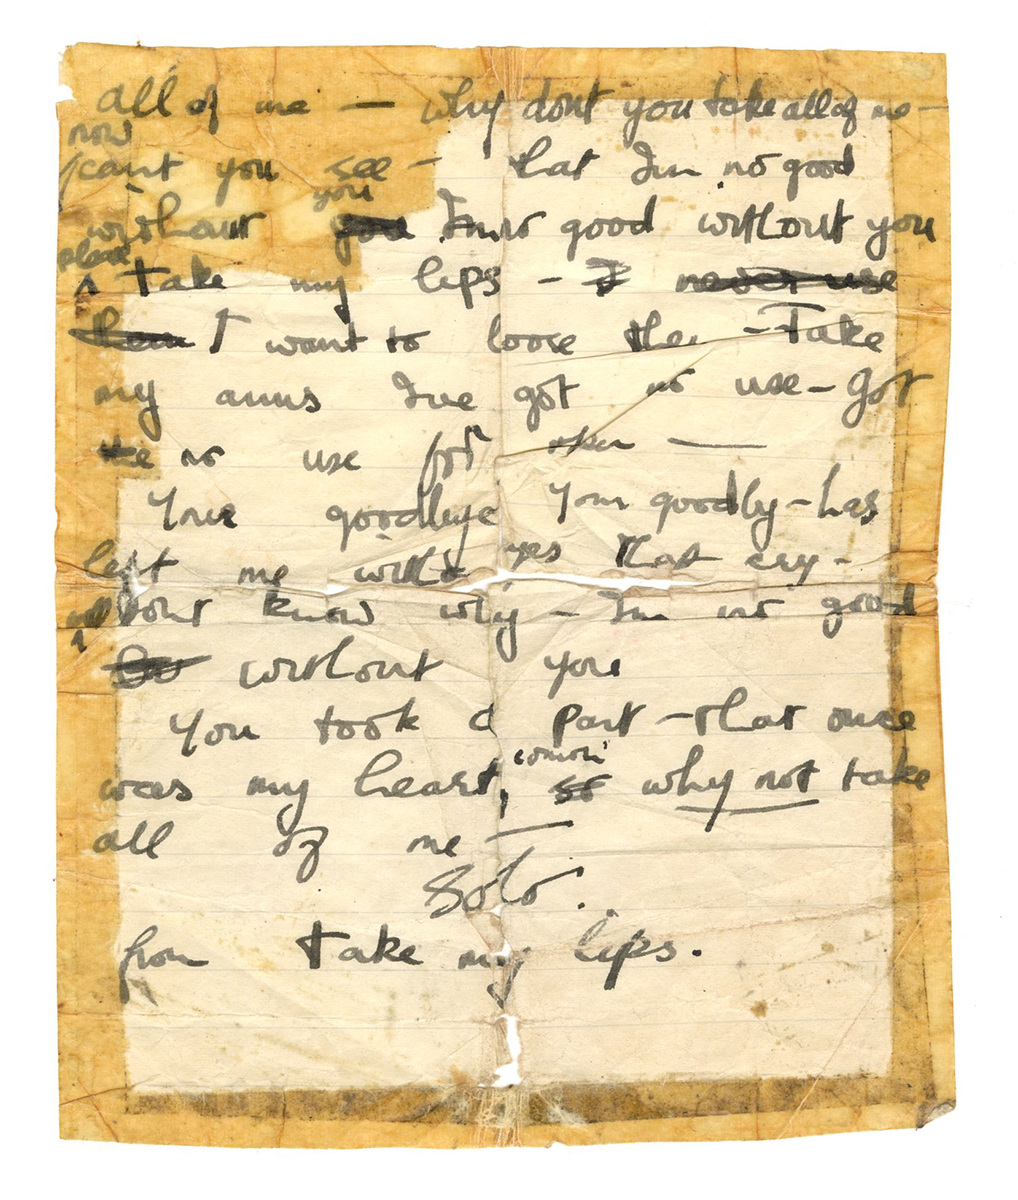 all of me — why dont you take all of me —
now
cant you see — that Im no good
you
without you Im no good without you
please
take my lips — I never use
them I want to loose them — Take
my arms Ive got no use — Got
the no use for them —
Your goodbye Your goodby — has
left me with yes that cry —
will
dont know why — Im no good
without you
You took a part — that once
comon
was my heart, so why not take
all of me —
Solo.
from take my lips.